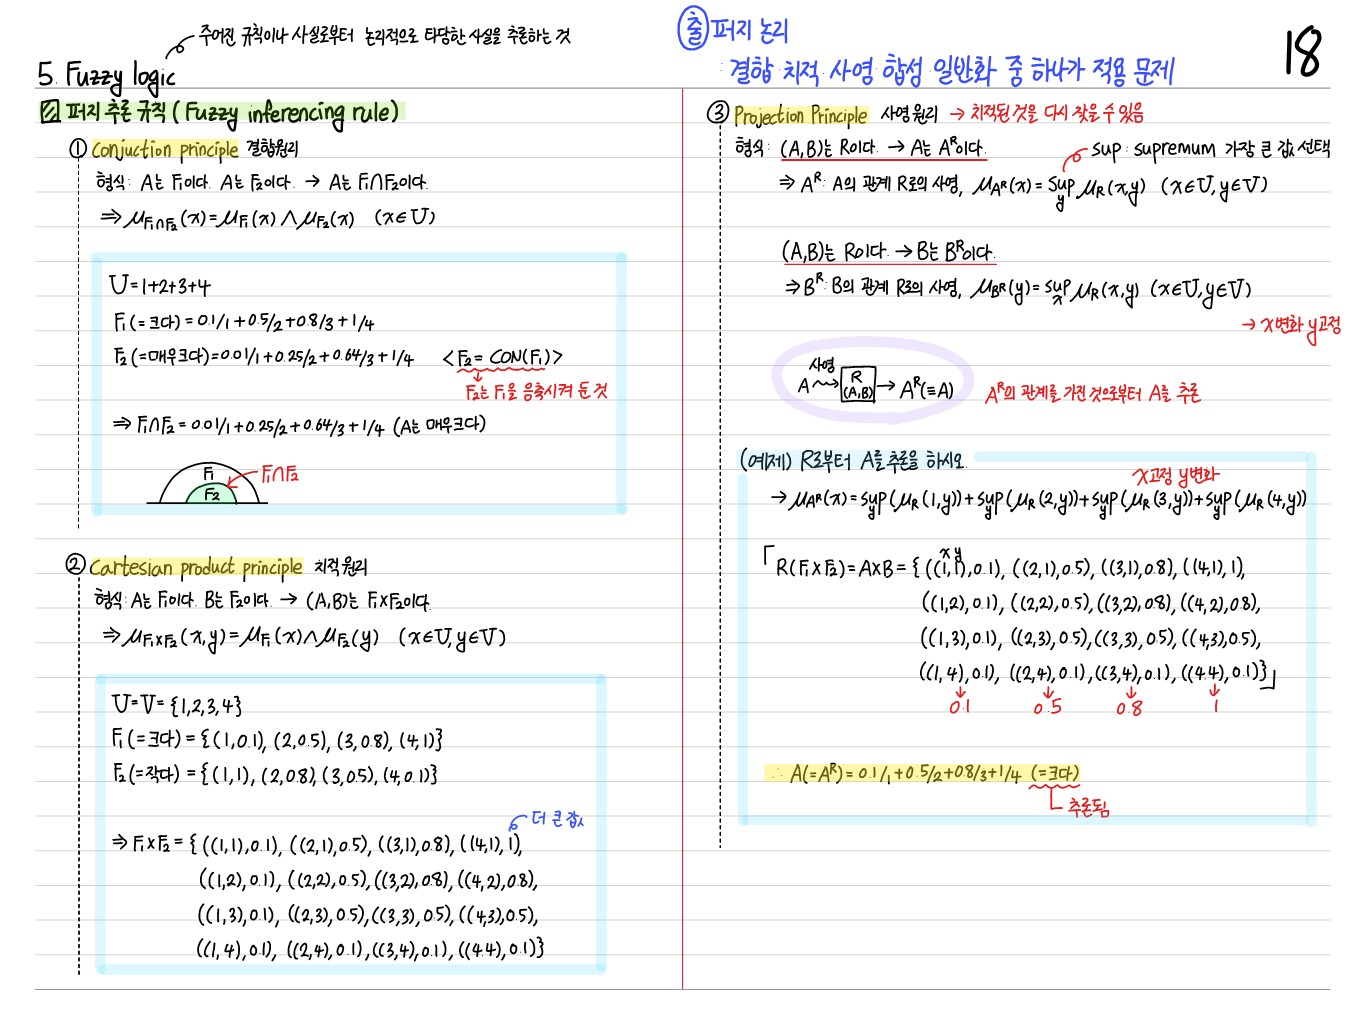 주어진 규칙이나 사실로부터 논리적으로 타당한 사실을 추론하는 것
5. Fuzzy logic
퍼지 추론 규칙 (Fuzzy inferencing rule)
① Conjuction principle 결합원리
형식: A는 F₁이다. A는 F₂이다. → A는 F₁∩F₂이다.
⇒ μF₁∩F₂(x) = μF₁(x) ∧ μF₂(x) (x∈U)
U = 1+2+3+4
F₁(=크다) = 0.1/1 + 0.5/2 + 0.8/3 + 1/4
F₂(=매우크다) = 0.01/1 + 0.25/2 + 0.64/3 + 1/4 <F₂ = CON(F₁)>
F₂는 F₁을 응축시켜 둔 것
⇒ F₁∩F₂ = 0.01/1 + 0.25/2 + 0.64/3 + 1/4 (A는 매우크다)
F₁
F₁∩F₂
F₂
② Cartesian product principle 치적원리
형식: A는 F₁이다. B는 F₂이다. → (A,B)는 F₁×F₂이다.
⇒ μF₁×F₂(x,y) = μF₁(x) ∧ μF₂(y) (x∈U, y∈V)
U = V = {1,2,3,4}
F₁(=크다) = {(1,0.1), (2,0.5), (3,0.8), (4,1)}
F₂(=작다) = {(1,1), (2,0.8), (3,0.5), (4,0.1)}
더 큰 값
⇒ F₁×F₂ = {((1,1),0.1), ((2,1),0.5), ((3,1),0.8), ((4,1),1),
((1,2),0.1), ((2,2),0.5), ((3,2),0.8), ((4,2),0.8),
((1,3),0.1), ((2,3),0.5), ((3,3),0.5), ((4,3),0.5),
((1,4),0.1), ((2,4),0.1), ((3,4),0.1), ((4.4),0.1)}
출 퍼지 논리
: 결합 치적 사영 합성 일반화 중 하나가 적용 문제
18
③ Projection Principle 사영원리 → 치적된 것을 다시 찾을 수 있음
형식: (A,B)는 R이다. → A는 Aᴿ이다.
sup : supremum 가장 큰 값 선택
⇒ Aᴿ: A의 관계 R로의 사영, μAᴿ(x) = sup y μR(x,y) (x∈U, y∈V)
(A,B)는 R이다. → B는 Bᴿ이다.
⇒ Bᴿ: B의 관계 R로의 사영, μBᴿ(y) = sup x μR(x,y) (x∈U, y∈V)
→ x변화 y고정
사영
A → R (A,B) → Aᴿ(≡A)
Aᴿ의 관계를 가진 것으로부터 A를 추론
(예제) R로부터 A를 추론을 하시오.
x고정 y변화
→ μAᴿ(x) = sup y(μR(1,y)) + sup y(μR(2,y)) + sup y(μR(3,y)) + sup y(μR(4,y))
x y
「R(F₁×F₂) = A×B = {((1,1),0.1), ((2,1),0.5), ((3,1),0.8), ((4,1),1),
((1,2),0.1), ((2,2),0.5), ((3,2),0.8), ((4,2),0.8),
((1,3),0.1), ((2,3),0.5), ((3,3),0.5), ((4,3),0.5),
((1,4),0.1), ((2,4),0.1), ((3,4),0.1), ((4.4),0.1)}」
0.1 0.5 0.8 1
∴ A(=Aᴿ) = 0.1/1 + 0.5/2 + 0.8/3 + 1/4 (=크다)
추론됨